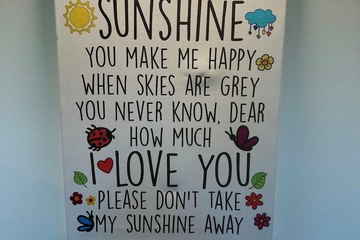 SUNSHINE
YOU MAKE ME HAPPY
WHEN SKIES ARE GREY
YOU NEVER KNOW, DEAR
HOW MUCH
I LOVE YOU
PLEASE DON'T TAKE
MY SUNSHINE AWAY